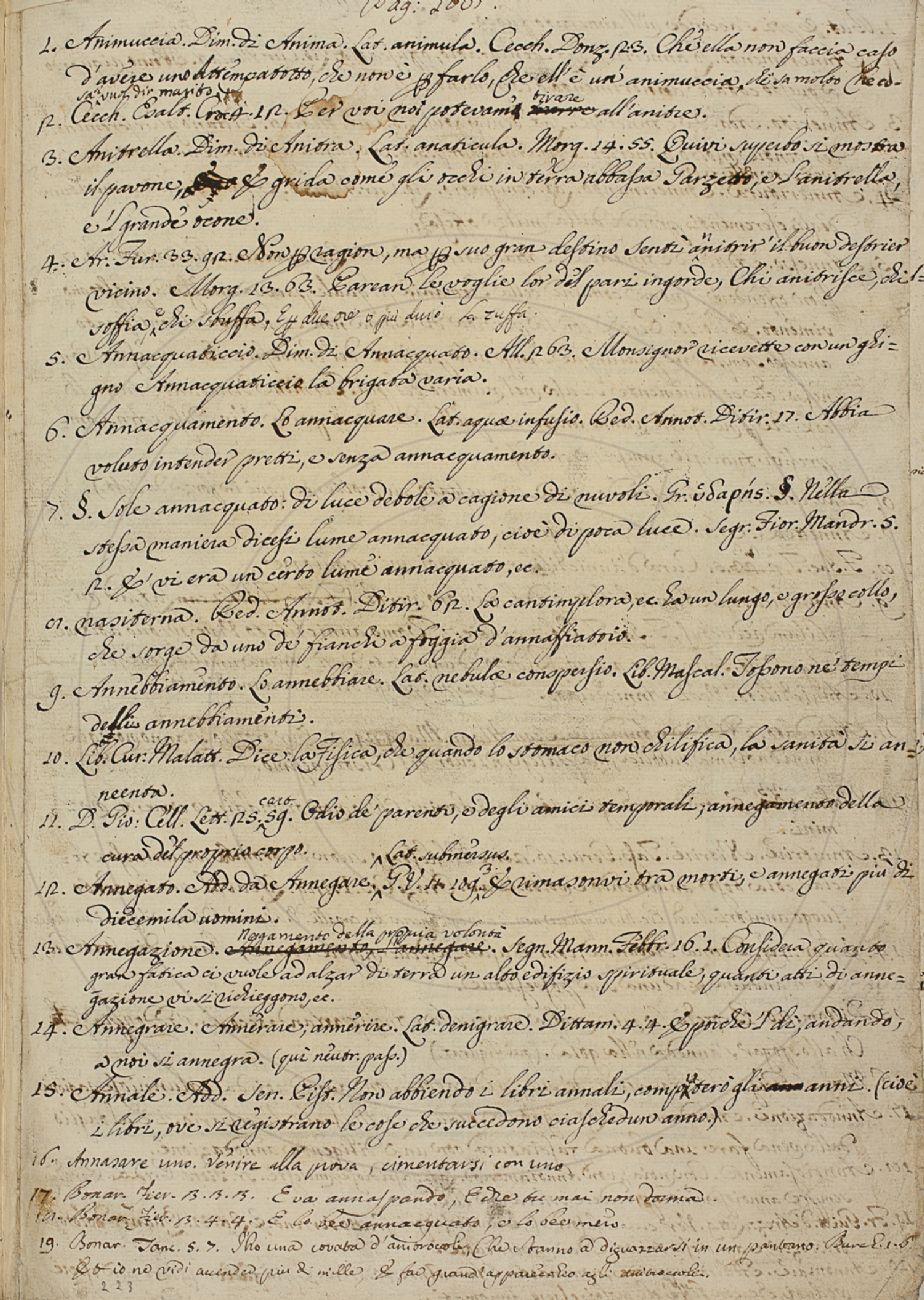 Pag: 200.
1. Animuccia. Dim. di Anima. Lat. animula. Cecch. Donz. 123. Ch'ella non faccia caso
d'avere uno Attempatotto, che non è p farlo, che ell'è un'animuccia, di sa molto
si vuol dir marito.
2. Cecch. Esalt. Cro. 12. Per voi noi potevamo tirare all'anitre.
3. Anitrella. Dim. di Anitra. Lat. anaticula. Morg. 14. 55. Quivi superbo si mostra
il pavone, & grida come gli occhi in terra abbassa Garzetto, e l'anitrella,
e 'l grande ocone.
4. Ar. Fur. 33. 92. Non p ragion, ma p suo gran destino Sentì anitrir il buon destrier
vicino. Morg. 13. 63. Parean le voglie lor del pari ingorde, Chi anitrisce, chi
soffia, e chi sbuffa, E p due ore o più durò La zuffa.
5. Annacquaticcio. Dim. di Annacquato. All. 263. Monsignor ricevette con un ghi-
gno Annacquaticcio la brigata varia.
6. Annacquamento. Lo annacquare. Lat. aquæ infusio. Red. Annot. Ditir. 17. Abbia
voluto intender pretti, e senza annacquamento.
7. §. Sole annacquato: di luce debole a cagione di nuvoli. Gr. ὑδαρής. §. Nella
stessa maniera dicesi lume annacquato, cioè di poca luce. Segr. Fior. Mandr. 5.
2. E' vi era un certo lume annacquato, ec.
8. nasiterna. Red. Annot. Ditir. 62. La cantimplora, ec. ha un lungo, e grosso collo,
che sorge da uno de' fianchi a foggia d'annaffiatoio.
9. Annebbiamento. Lo annebbiare. Lat. nebulæ conspersio. Lib. Mascal. Tossono ne' tempi
delli annebbiamenti.
10. Lib. Cur. Malatt. Dice la Fisica, che quando lo stomaco non chilifica, la sanità si an-
neenta.
11. D. Gio: Cell. Lett. 25. cart. 59. Odio de' parenti, e degli amici temporali, annegamento della
cura del proprio corpo.
Lat. submersus.
12. Annegato. Add. da Annegare. G. V. 11. 109. 3. E rimasonvi tra morti, e annegati più di
diecemila uomini.
Negamento della propria volontà
13. Annegazione. Annegamento, l'annegare. Segn. Mann. Febbr. 16. 1. Considera quanto
gran fatica ci vuole ad alzar di terra un alto edifizio spirituale, quanti atti di anne-
gazione vi si richieggono, ec.
14. Annegrare. Annerare, annerire. Lat. denigrare. Dittam. 4. 4. E poiché 'l dì, andando,
a noi si annegra. (quì neutr. pass.)
15. Annale. Add. Sen. Pist. Non abbiendo i libri annali, comp terò gli anni. (cioè
i libri, ove si registrano le cose che succedono ciaschedun anno.)
16. Annasare uno. Venire alla prova, cimentarsi con uno.
17. Bonar. Fier. 3. 3. 3. E va annaspando, E che tu mai non dorma.
18. Bonar. Fier. 3. 4. 4. E lo bee annacquato, e lo bee mero.
19. Bonar. Tanc. 5. 7. I' ho una covata d'anitroccoli, Che stanno a diguazzarsi in un pantano. Burch. 1. 6
Et io ne vidi accender più di mille, E far grand'apparecchio agli anitroccoli.
223